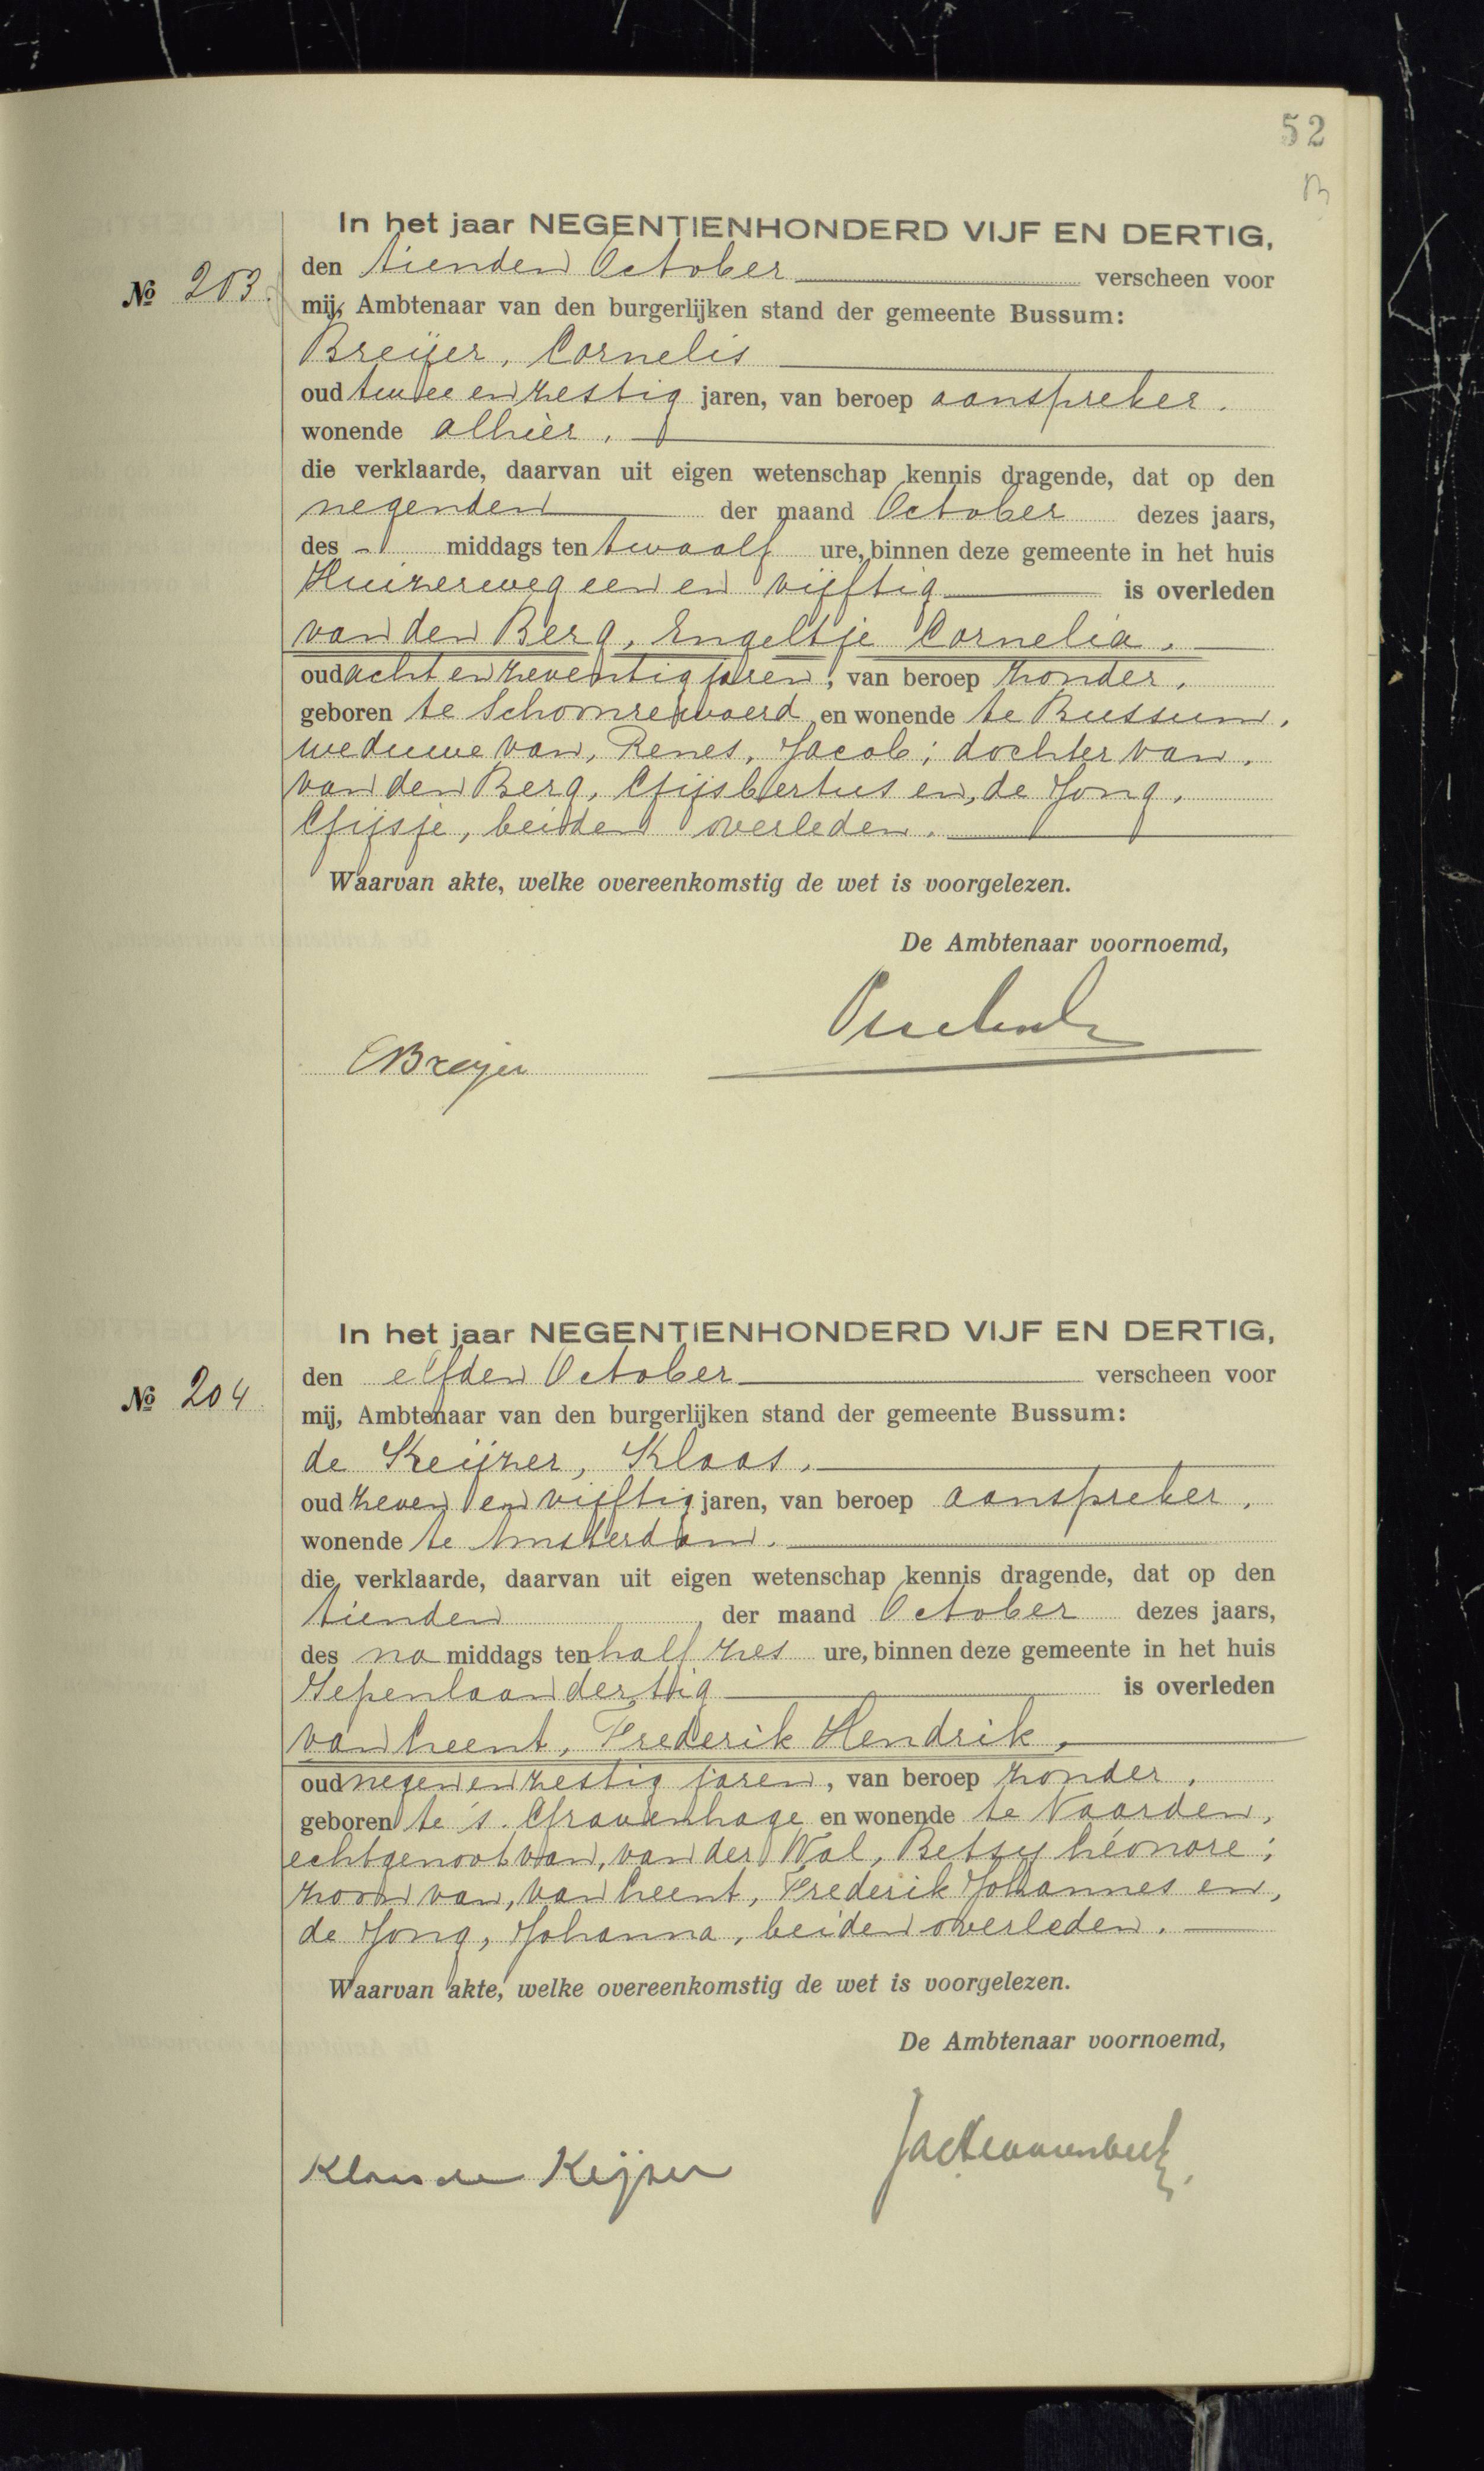 52
In het jaar NEGENTIENHONDERD VIJF EN DERTIG,
den tienden October verscheen voor
No 203.
mij, Ambtenaar van den burgerlijken stand der gemeente Bussum:
Breijer, Cornelis
oud twee en zestig jaren, van beroep aanspreker.
wonende alhier.
die verklaarde, daarvan uit eigen wetenschap kennis dragende, dat op den
negenden der maand October dezes jaars,
des - middags ten twaalf ure, binnen deze gemeente in het huis
Huizerweg een en vijftig is overleden
van den Berg, Engeltje Cornelia.
oud acht en zeventig jaren, van beroep zonder.
geboren te Schoonrewoerd en wonende te Bussum,
weduwe van, Renes, Jacob; dochter van,
van den Berg, Gijsbertus en, de Jong,
Gijsje, beiden overleden.
Waarvan akte, welke overeenkomstig de wet is voorgelezen.
De Ambtenaar voornoemd,
CBreyer
In het jaar NEGENTIENHONDERD VIJF EN DERTIG,
den elfden October verscheen voor
No 204
mij, Ambtenaar van den burgerlijken stand der gemeente Bussum:
de Keijzer, Klaas.
oud zeven en vijftig jaren, van beroep aanspreker,
wonende te Amsterdam.
die verklaarde, daarvan uit eigen wetenschap kennis dragende, dat op den
tienden der maand October dezes jaars,
des na middags ten half zes ure, binnen deze gemeente in het huis
Iepenlaan dertig is overleden
van Leent, Frederik Hendrik,
oud negen en zestig jaren, van beroep zonder,
geboren te 's. Gravenhage en wonende te Naarden,
echtgenoot van, van der Wal, Betsy Léonore;
zoon van, van Leent, Frederik Johannes en,
de Jong, Johanna, beiden overleden.
Waarvan akte, welke overeenkomstig de wet is voorgelezen.
De Ambtenaar voornoemd,
Klaas de Keijzer